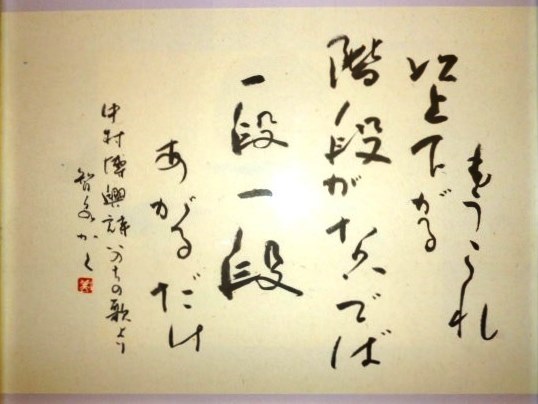 もうこれ
以上下がる
階段がなければ
一段一段
あがるだけ
中村博興詩いのちの歌より
かく